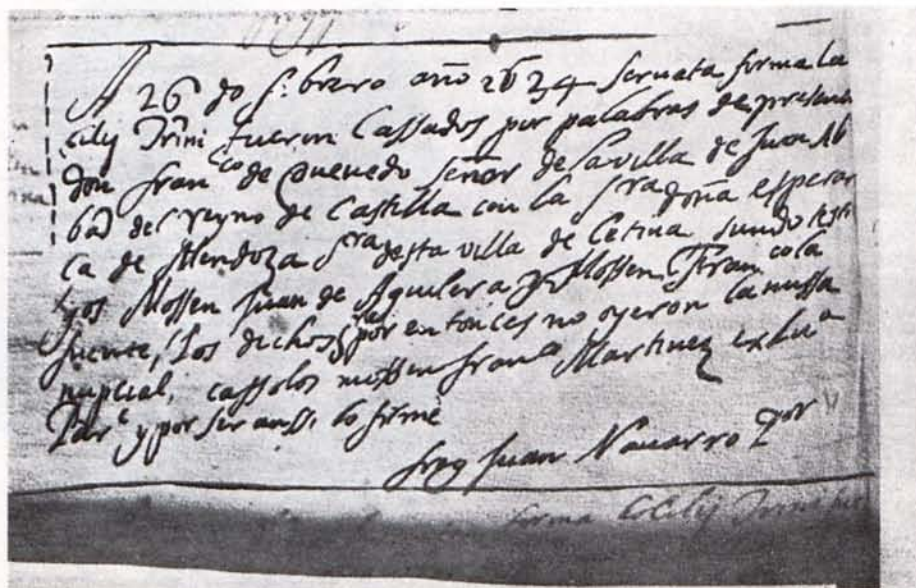 A 26 de febrero año 1634 seruata forma
Cilij Trini fueron Cassados por palabras de presente
don franco de queuedo señor de la villa de Juan Ab
bad del reyno de Castilla con la sra doña esperan
ca de Mendoza sra desta villa de Cetina siendo testi
gos Mossen Juan de Aguilera y Mossen Franco la
fuente, Los dichos por entonces no oyeron la missa
nupcial, cassolos mossen franco Martinez ex
y por ser anssi lo firme
fray Juan Nauarro
forma Cilij